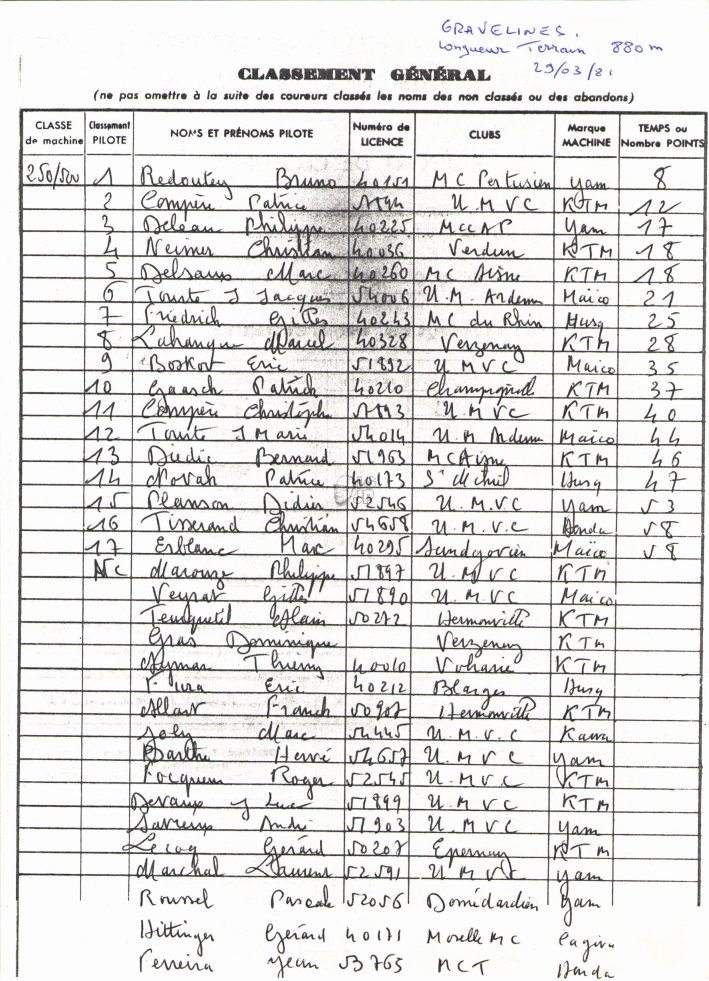 GRAVELINES.
Longueur Terrain 880m
29/03/81
CLASSEMENT GÉNÉRAL
(ne pas omettre à la suite des coureurs classés les noms des non classés ou des abandons)
CLASSE de machine Classement PILOTE NOMS ET PRÉNOMS PILOTE Numéro de LICENCE CLUBS Marque MACHINE TEMPS ou Nombre POINTS
250/500 1 Redoutey Bruno 40151 MC Pertusien Yam 8
2 Compère Patrice 51894 U.M.V.C KTM 12
3 Deleau Philippe 40225 MCCAP Yam 17
4 Neimer Christian 40036 Verdun KTM 18
5 Delsaux Marc 40260 MC Aisne KTM 18
6 Tourte J Jacques 54006 U.M. Ardenn Maico 21
7 Friedrich Gilles 40243 MC du Rhin Husq 25
8 Lahangue Marcel 40328 Verzenay KTM 28
9 Boskov Eric 51892 U M V C Maico 35
10 Gaasch Patrick 40210 KTM 37
11 Compère Christophe 51893 U.M.V.C KTM 40
12 Tourte J Marie 54014 U M Ardenn Maico 44
13 Dudic Bernard 51963 MC Aisne KTM 46
14 Novak Patrice 40173 Husq 47
15 Plançon Didier 52546 U.M.V.C Yam 53
16 Tisserand Christian 54658 U.M.V.C Honda 58
17 Erblanc Marc 40295 Sundgovien Maico 58
NC Marouze Philippe 51897 U.M.V.C KTM
Veyrat Gilles 51890 U.M.V.C Maico
Alain 50272 Hermonville KTM
Gras Dominique Verzenay KTM
Aymar Thierry 40010 KTM
Eric 40212 Blarges Husq
Allart Franck 50907 Hermonville KTM
Joly Marc 54445 U.M.V.C Kawa
Barthe Hervé 54657 U.M.V.C Yam
Focqueur Roger 52545 U.M.V.C KTM
Devaux J Luc 51899 U.M.V.C KTM
Savreux André 51903 U.M.V.C Yam
Lecoq Gerard 50207 Epernay KTM
Marchal Laurent 52591 U.M.V.C Yam
Roussel Pascale 52056 Domédardien Yam
Hittinger Gérard 40171 Moselle MC Cagiva
Ferreira Jean 53765 MCT Honda